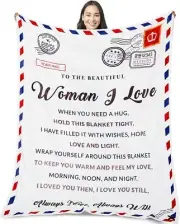 TO THE BEAUTIFUL
Woman I Love
WHEN YOU NEED A HUG,
HOLD THIS BLANKET TIGHT,
I HAVE FILLED IT WITH WISHES, HOPE
LOVE AND LIGHT.
WRAP YOURSELF AROUND THIS BLANKET
TO KEEP YOU WARM AND FEEL MY LOVE,
MORNING, NOON, AND NIGHT.
I LOVED YOU THEN, I LOVE YOU STILL,
Always Have, Always Will